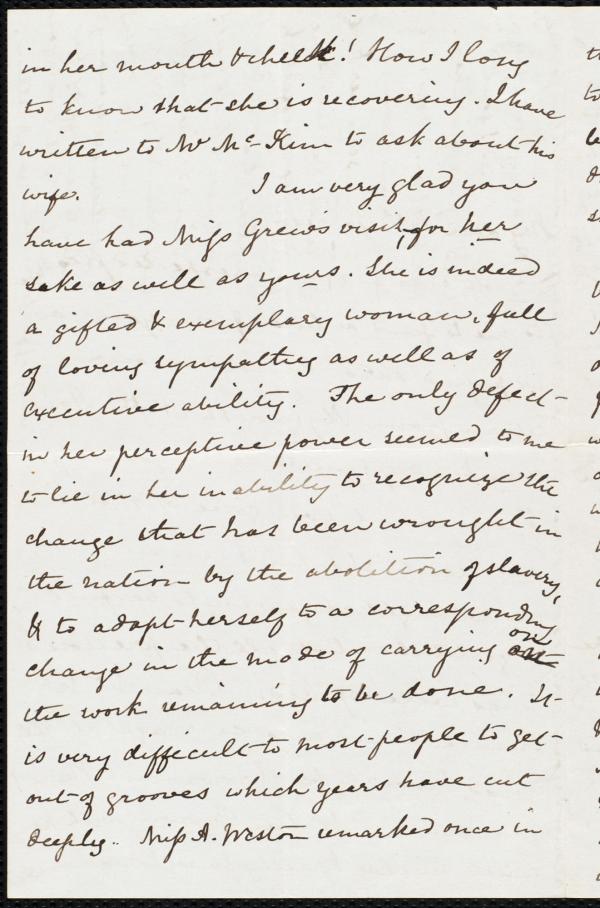 in her mouth & cheek! How I long
to know that she is recovering. I have
written to Mr. McKim to ask about his
wife. I am very glad you
have had Miss Grew's visit, for her
sake as well as yours. She is indeed
a gifted & exemplary woman, full
of loving sympathies as well as of
executive ability. The only defect
in her perceptive power seemed to me
to lie in her inability to recognize the
change that has been wrought in
the nation by the abolition of slavery,
& to adapt herself to a corresponding
change in the mode of carrying on
the work remaining to be done. It
is very difficult to most people to get
out of grooves which years have cut
deeply. Miss A. Weston remarked once in